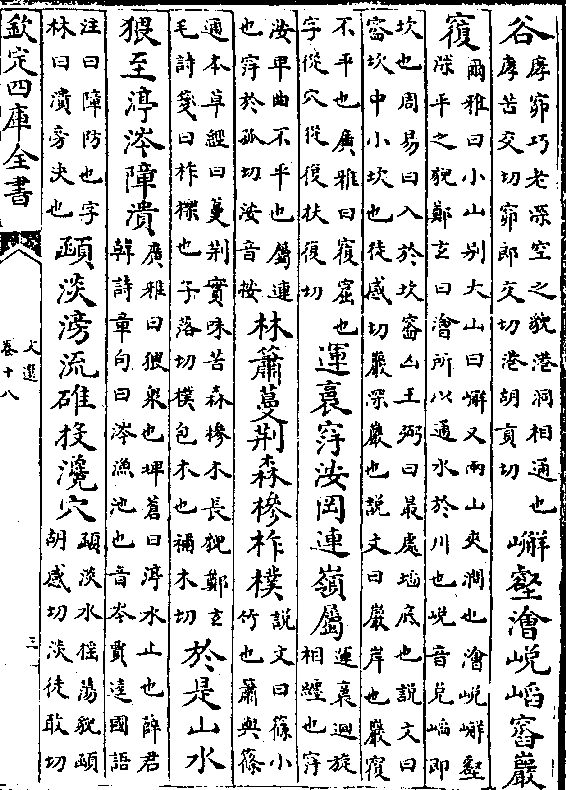 谷庨窌巧老深空之貌港洞相通也
庨苦交切窌郎交切港胡貢切
嶰壑澮㟋㟏窞巖
𥨍爾雅曰小山别大山曰嶰又兩山夾澗也澮㟋嶰壑
深平之貌鄭玄曰澮所以通水於川也㟋音兌㟏即
坎也周易曰入於坎窞凶王弼曰最處埳底也説文曰
窞坎中小坎也徒感切巖深巖也説文曰巖岸也巖𥨍
不平也廣雅曰𥨍窟也
字從穴從復扶復切
運裛窏洝岡連嶺屬
運裛迴旋
相纒也窏
洝卑曲不平也屬連
也窏於孤切洝音按
林簫蔓荆森槮柞樸
説文曰篠小
竹也簫與篠
通本草經曰蔓荆實味苦森槮木長貌鄭玄
毛詩箋曰柞櫟也子落切樸包木也補木切
於是山水
猥至渟涔障潰
廣雅曰猥衆也埤蒼曰渟水止也薛君
韓詩章句曰涔漁池也音岑賈逵國語
注曰障防也字
林曰潰旁決也
顄淡滂流碓投瀺穴
顄淡水揺蕩貌顄
胡感切淡徒敢切
欽定四庫全書
文選
卷十八
三